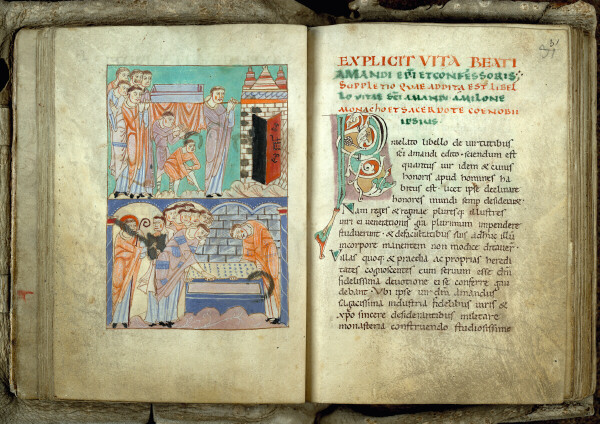 EXPLICIT VITA BEATI
AMANDI EPI ET CONFESSORIS;
SUPPLETIO QUAE ADDITA EST LIBEL
LO VITAE SCI AMANDI A MILONE
MONACHO ET SACERDOTE COENOBII
IPSIUS
Prelato libello de uirtutibus
sci amandi edito sciendum est
quantus uir idem & cuius
honoris apud homines ha
bitus est licet ipse declinare
honores mundi semp desiderare
Nam reges & reginae pluresq illustres
uiri ei uenerationis qd plurimum impendere
studuerunt & de facultatibus suis adhuc illu
in corpore manentem non modice ditauer
uillas quoq & praedia ac proprias heredi
tates cognoscentes eum seruum esse dni
fidelissima deuotione ei se conferre gau
debant Vbi ipse uir dni amandus
sagacissima industria fidelibus uiris &
xpo sincere desiderantibus militare
monasteria construendo studiosissime